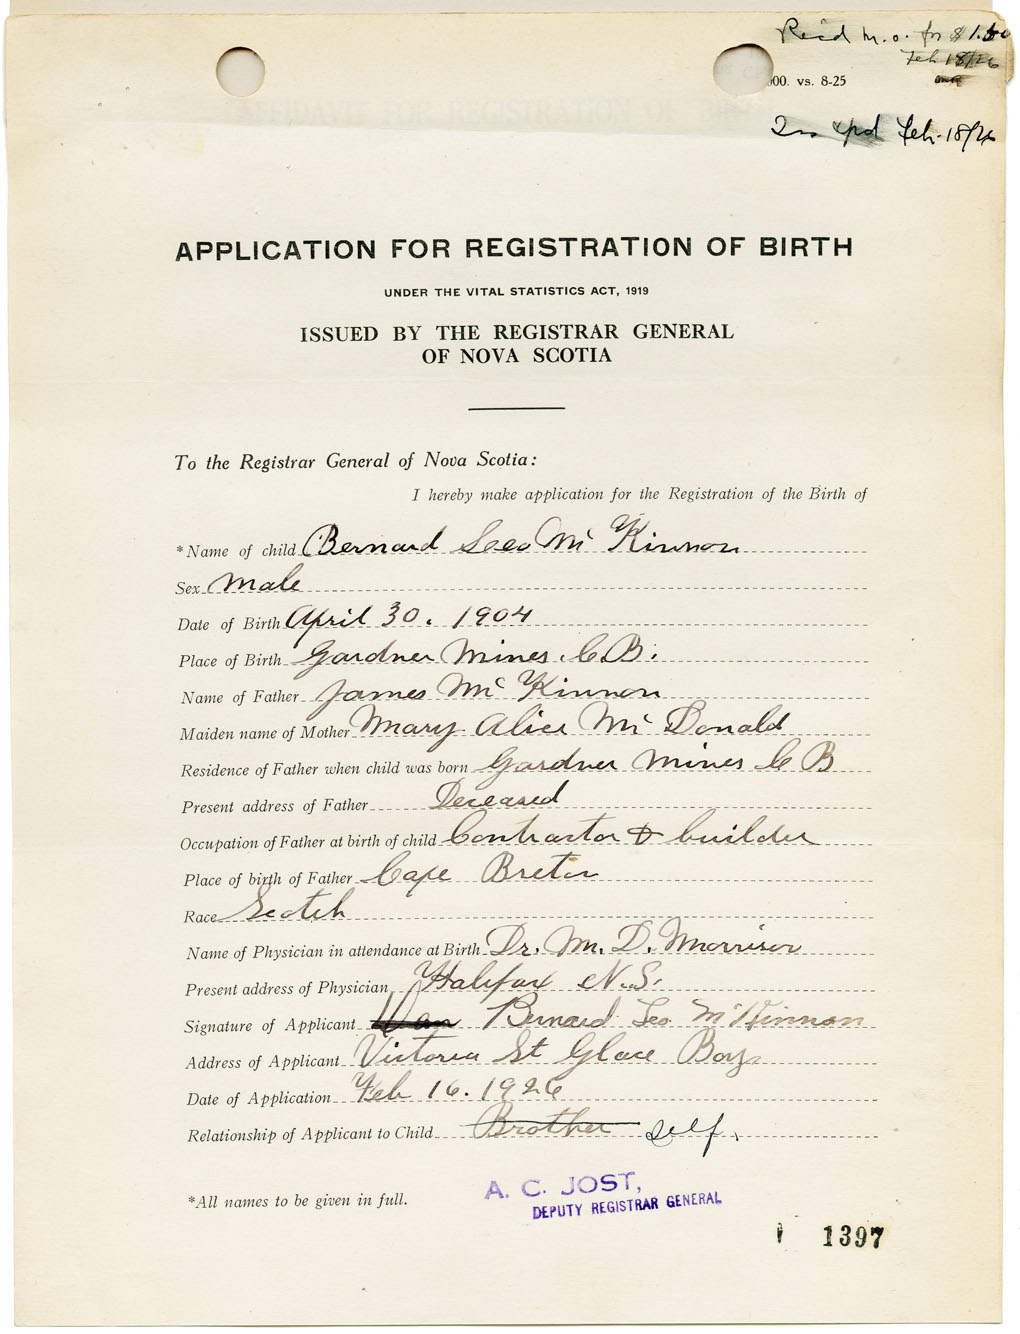 Rec'd M.O. for $1.50
Feb 18/26
000. vs. 8-25
Feb. 18/26
APPLICATION FOR REGISTRATION OF BIRTH
UNDER THE VITAL STATISTICS ACT, 1919
ISSUED BY THE REGISTRAR GENERAL
OF NOVA SCOTIA
To the Registrar General of Nova Scotia:
I hereby make application for the Registration of the Birth of
*Name of child Bernard Leo Mc Kinnon
Sex Male
Date of Birth April 30. 1904
Place of Birth Gardner Mines C.B.
Name of Father James Mc Kinnon
Maiden name of Mother Mary Alice Mc Donald
Residence of Father when child was born Gardner Mines C B
Present address of Father Deceased
Occupation of Father at birth of child Contractor & builder
Place of birth of Father Cape Breton
Race Scotch
Name of Physician in attendance at Birth Dr. M. D. Morrison
Present address of Physician Halifax N.S.
Signature of Applicant Dan Bernard Leo McKinnon
Address of Applicant Victoria St Glace Bay
Date of Application Feb 16. 1926
Relationship of Applicant to Child Brother self.
*All names to be given in full.
A. C. JOST,
DEPUTY REGISTRAR GENERAL
1397